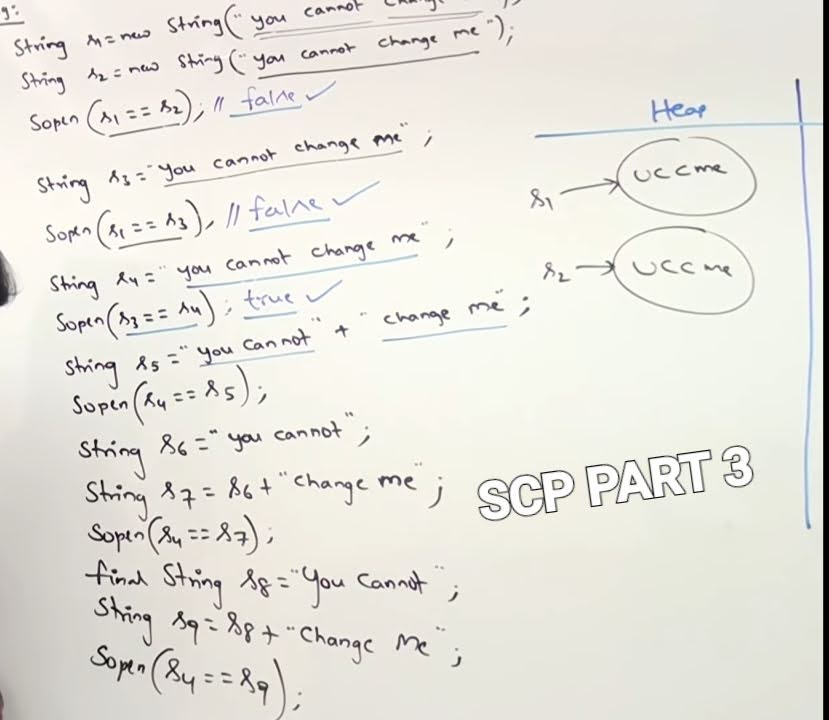 g:
String s1 = new String("you cannot change
String s2 = new String("you cannot change me");
Sopen(s1 == s2); // false ✓
String s3 = "you cannot change me";
Sopen(s1 == s3), // false ✓
String s4 = "you cannot change me";
Sopen(s3 == s4); true ✓
String s5 = "you cannot" + "change me";
Sopen(s4 == s5);
String s6 = "you cannot";
String s7 = s6 + "change me";
Sopen(s4 == s7);
final String s8 = "You Cannot";
String s9 = s8 + "Change Me";
Sopen(s4 == s9);
Heap
s1 → UCCme
s2 → UCCme
SCP PART 3